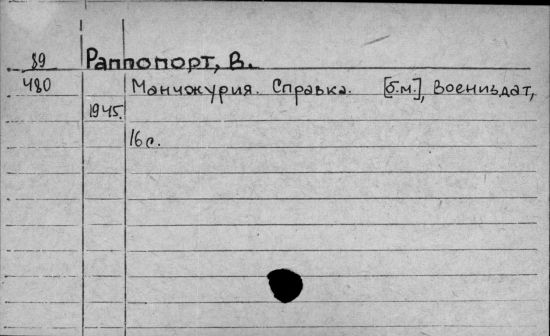 89 Раппопорт, В.
480 Манчжурия. Справка. [б.м.], Воениздат,
1945.
16 с.